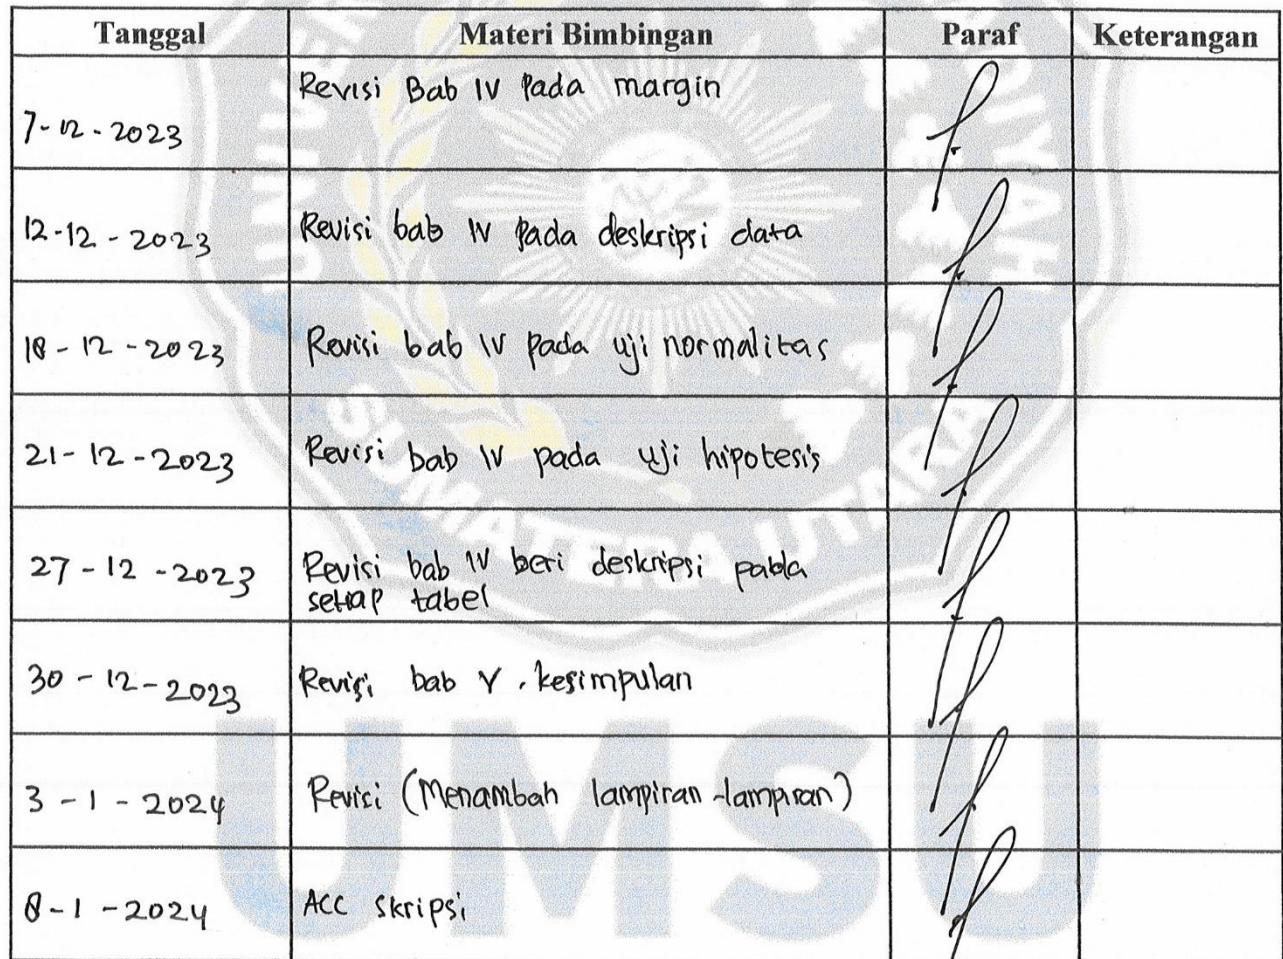 Tanggal Materi Bimbingan Paraf Keterangan
7-12-2023 Revisi Bab IV Pada margin
12-12-2023 Revisi bab IV Pada deskripsi data
18-12-2023 Revisi bab IV pada uji normalitas
21-12-2023 Revisi bab IV pada uji hipotesis
27-12-2023 Revisi bab IV beri deskripsi pada
setiap tabel
30-12-2023 Revisi bab V. kesimpulan
3-1-2024 Revisi (Menambah lampiran-lampiran)
8-1-2024 ACC skripsi
SUMATERA UTARA
UMSU